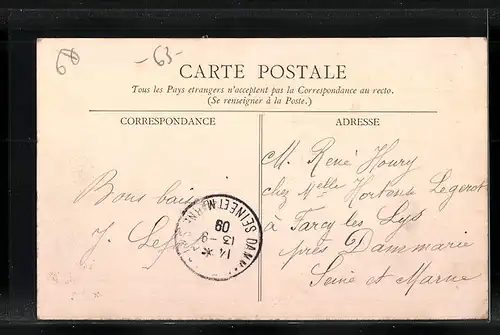 68
-63-
CARTE POSTALE
Tous les Pays etrangers n'acceptent pas la Correspondance au recto.
(Se renseigner à la Poste.)
CORRESPONDANCE
Bons bais
J.
ADRESSE
M. René Houry
chez Melle Hortense Legerot
à Farcy les Lys
près Dammarie
Seine et Marne
DAMM
SEINE ET MARNE
14 *
13-8
09